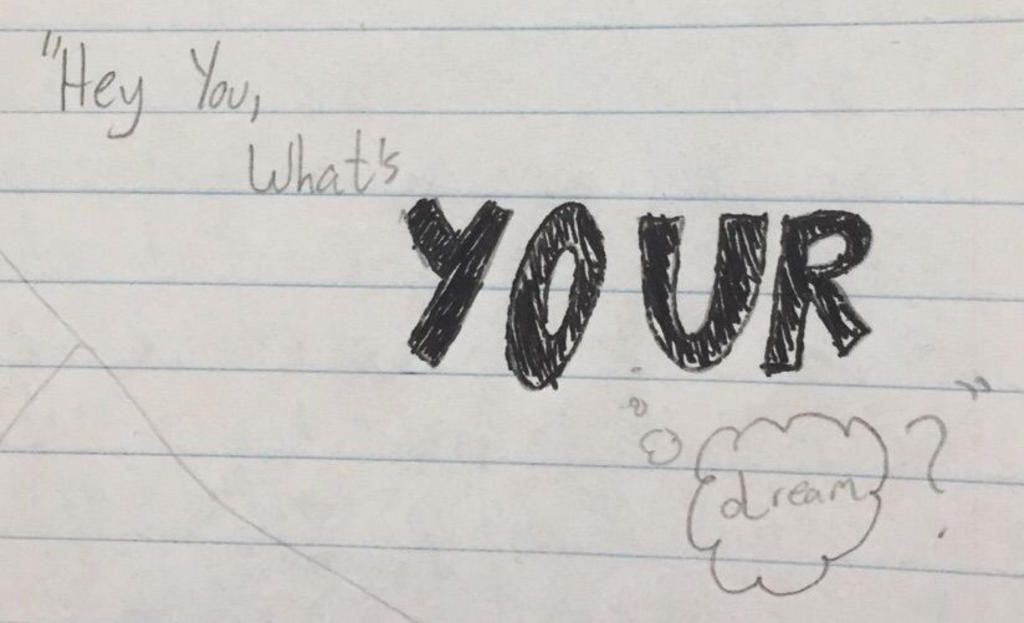 "Hey You,
What's
YOUR
dream?"